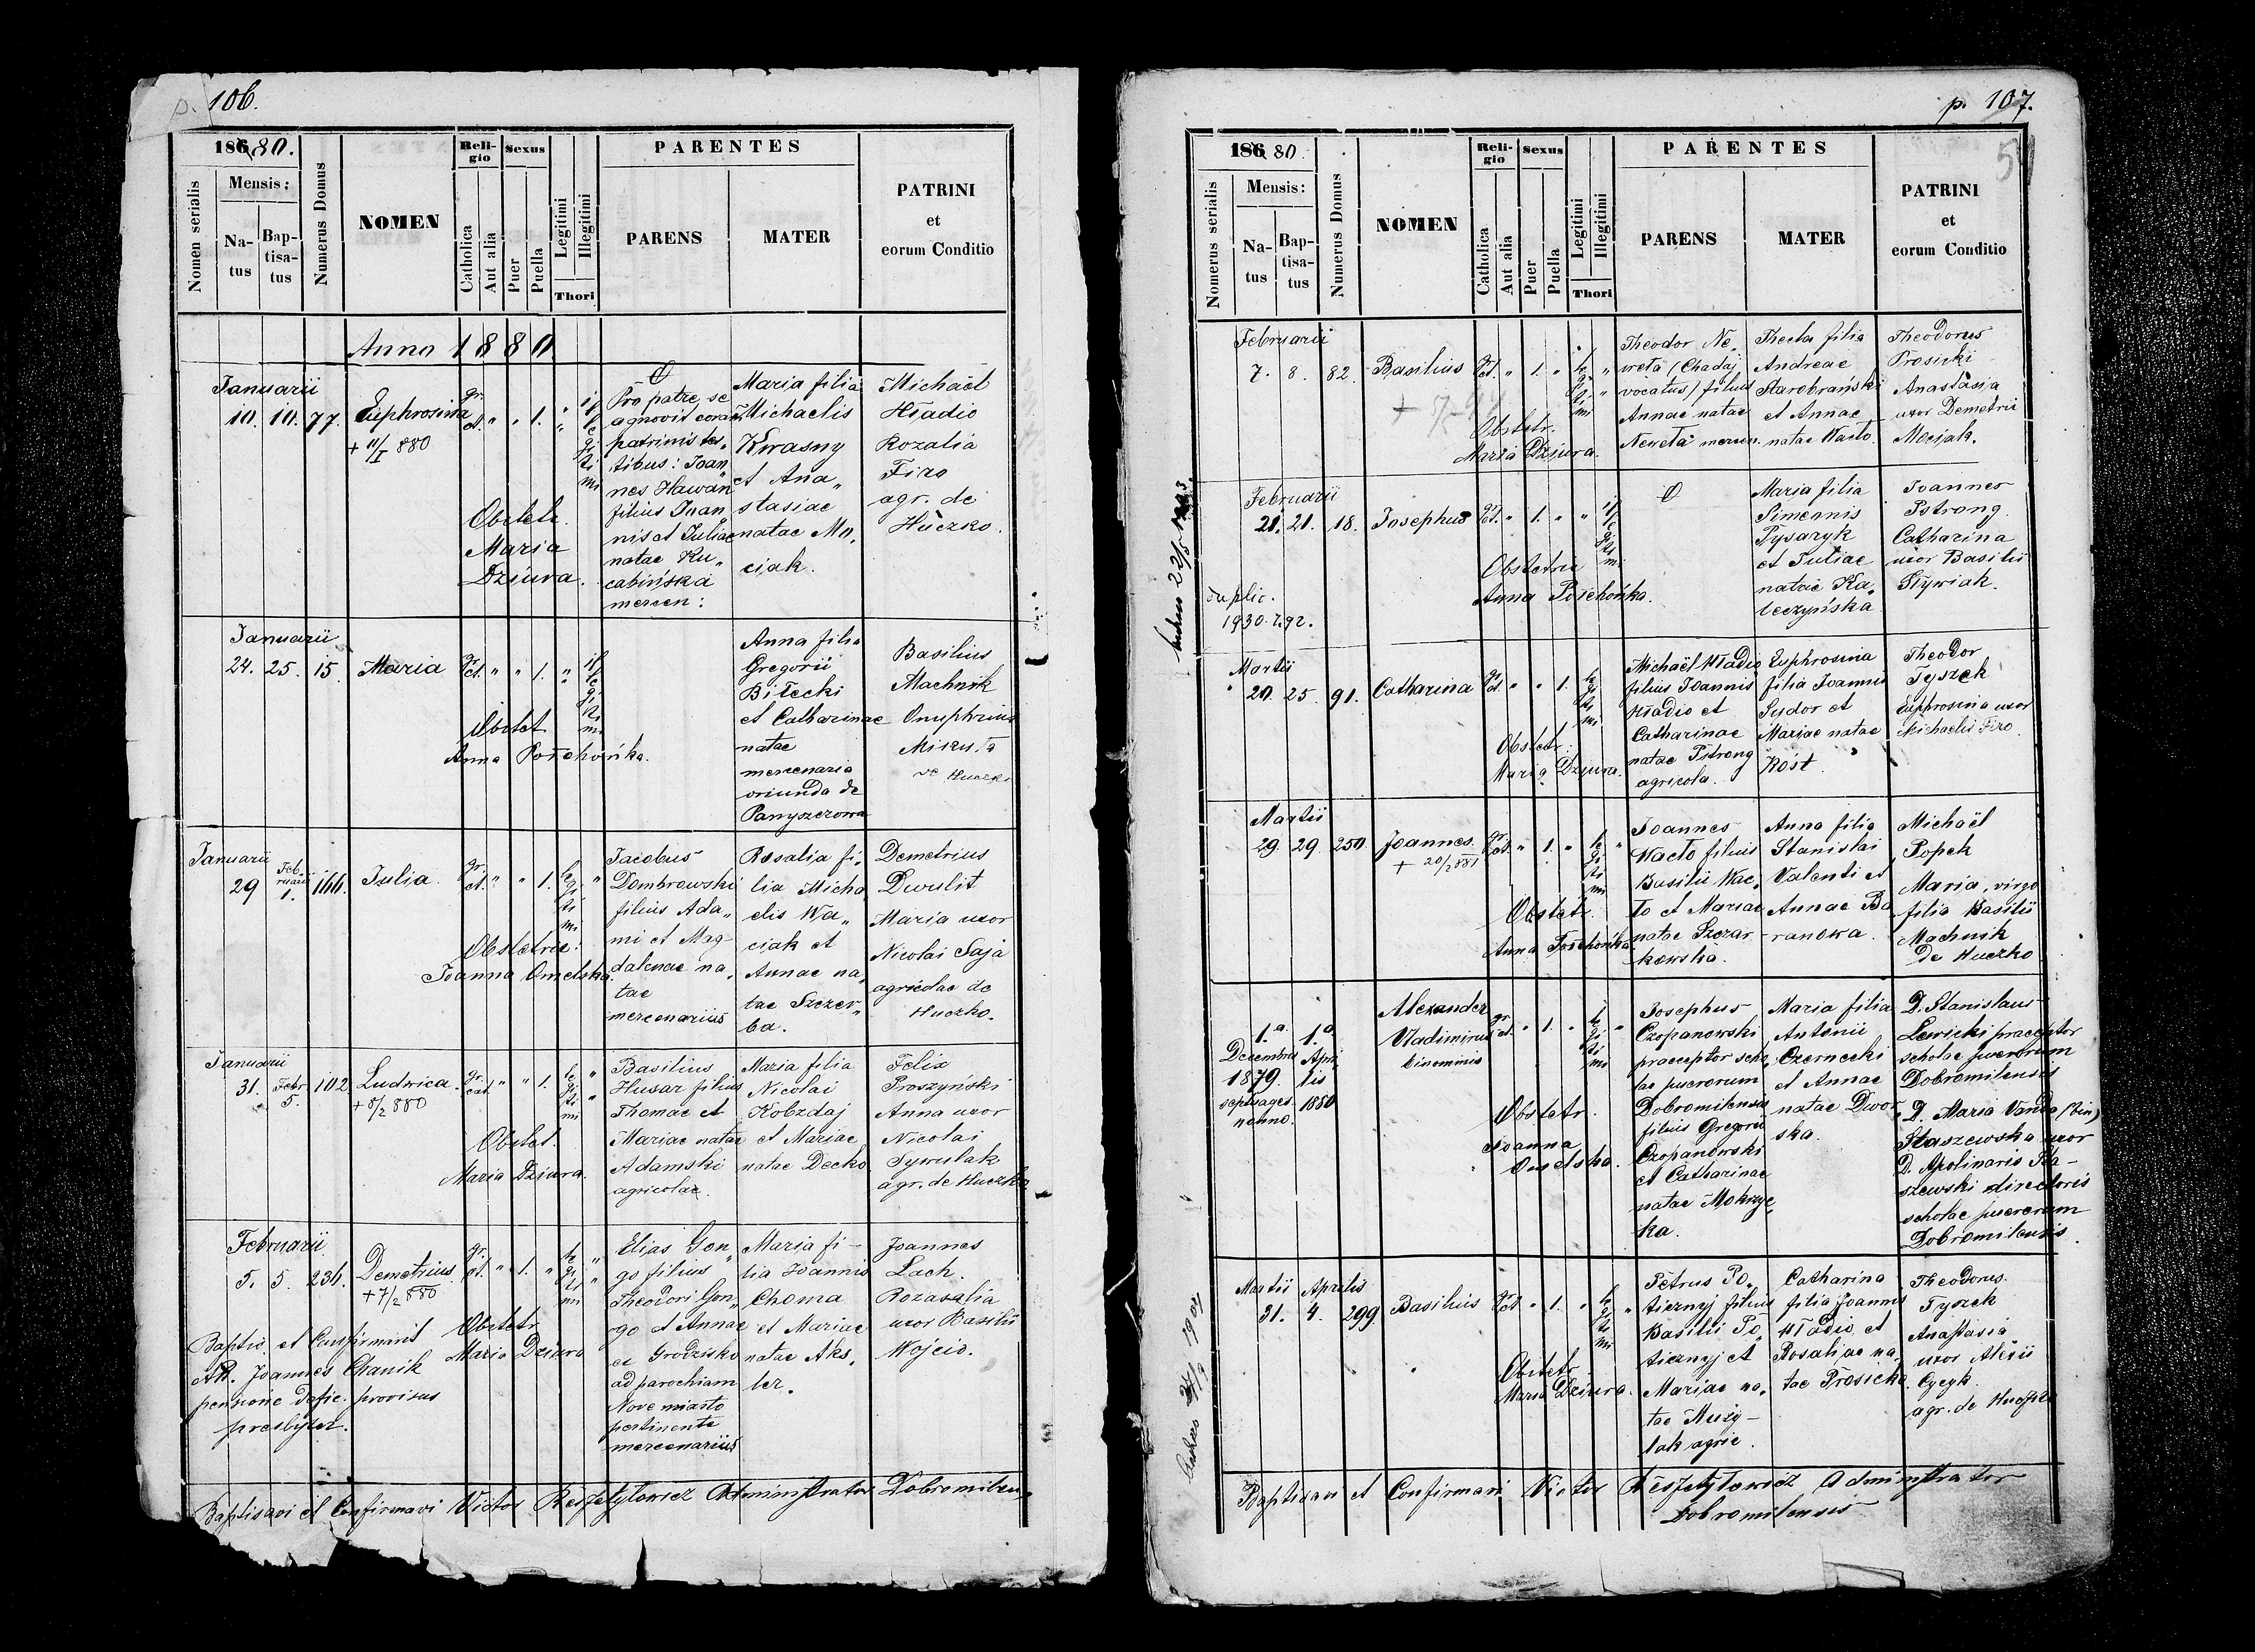 p. 106.
186 80.
Nomen serialis
Mensis:
Na-
tus
Bap-
tisa-
tus
Numerus Domus
NOMEN
Reli-
gio
Catholica
Aut alia
Sexus
Puer
Puella
Legitimi
Illegitimi
Thori
PARENTES
PARENS
MATER
PATRINI
et
eorum Conditio
Anno 1880
Januarii
10. 10. 77.
Euphrosina
+ 11/I 880
gr. ct. " " 1.
illegitimi
Obstetr.
Maria
Dziura.
Pro patre se
agnovit coram
patrinis tes„
tibus: Joan„
nes Hawan
filius Joan„
nis et Juliae
natae Ku„
cabińska
mercen:
Maria filia
Michaelis
Kwasny
et Ana„
stasiae
natae Mo„
ciak.
Michaël
Hładio
Rozalia
Firo
agr. de
Huczko.
Januarii
24. 25. 15.
Maria
gr. ct. " " 1. "
illegitimi
Obstet
Anna Porchońka.
Anna filia
Gregorii
Biłecki
et Catharinae
natae
mercenaria
oriunda de
Basilius
Machnik
Onuphrius
de Huczko
Januarii
29 Februarii 1. 166.
Julia
gr. ct. " " 1.
legitimi "
Obstetrix:
Joanna Omelska.
Jacobus
Dombrowski
filius Ada„
mi et Mag-
dalenae na„
tae
mercenarius
Rosalia fi„
lia Micha„
elis Wa„
ciak et
Annae na„
tae Szczer„
ba.
Demetrius
Dwulit
Maria uxor
Nicolai Saja
agricolae de
Huczko.
Januarii
31. Febr 5. 102
Ludvica.
+ 8/2 880
gr. cat. " " 1.
legitimi "
Obstet.
Maria Dziura.
Basilius
Husar filius
Thomae et
Mariae natae
Adamski
agricolae.
Maria filia
Nicolai
Kobzdaj
et Mariae
natae Decko
Felix
Proszyński
Anna uxor
Nicolai
Sywulak
agr. de Huczko
Februarii
5. 5. 236.
Demetrius
+ 7/2 880
gr. ct. " 1. "
legitimi "
Obstetr
Maria Dziura
Elias Gon„
go filius
Theodori Gon„
go et Annae
ex Grodzisko
ad parochiam
Nove miasto
pertinente
mercenarius
Maria fi-
lia Joannis
Choma
et Mariae
natae Aks„
ler.
Joannes
Lach.
Rozasalia
uxor Basilii
Wojcio.
Baptis. et Confirmavit
AR. Joannes Chanik
pensione defic. provisus
presbyter.
Baptisavi et Confirmavi Victor Reszetylowicz Administrator Dobromilen„
p. 107.
186 80.
Nomerus serialis
Mensis:
Na-
tus
Bap-
tisa-
tus
Numerus Domus
NOMEN
Reli-
gio
Catholica
Aut alia
Sexus
Puer
Puella
Legitimi
Illegitimi
Thori
PARENTES
PARENS
MATER
PATRINI
et
eorum Conditio
Februarii
7. 8. 82.
Basilius
gr. ct. " 1. "
legitimi "
Obstetr.
Maria Dziura.
Theodor Ne„
weta (Chadaj
vocatus) filius
Annae natae
Neweta mercen.
Thecla filia
Andreae
Starohrański
et Annae
natae Wacło.
Theodorus
Prosicki
Anastasia
uxor Demetrii
Mociak.
Februarii
21. 21. 18.
Josephus
gr. ct. " 1. " "
illegitimi
Obstetrix
Anna Porchońka.
duplic.
1930. L. 92.
Maria filia
Simeonis
Pysaryk
et Juliae
natae Ka„
leczyńska
Joannes
Pstrong.
Catharina
uxor Basilii
Styrviak.
Martii
20. 25. 91.
Catharina
gr. ct. " " 1.
legitimi
Obstetr:
Maria Dziura.
Michaël Hładio
filius Joannis
Hładio et
Catharinae
natae Pstrong
agricola.
Euphrosina
filia Joannis
Sudor et
Mariae natae
Kost.
Theodor
Tyszek
Euphrosina uxor
Michaelis Firo.
Martii
29. 29. 250
Joannes.
+ 20/2 881
gr. ct. " 1. "
legitimi "
Obstetr.
Anna Porchońka
Joannes
Wacło filius
Basilii Wac„
ło et Mariae
natae Szczar„
kowska.
Anna filia
Stanislai
Valenti et
Annae Ba
ranowa.
Michaël
Popek
Maria, virgo
filia Basilii
Machnik
De Huczko
1.a Decembris 1879. septuages. nonno.
1.a Aprilis 1880
Alexander
Vladimirus
binominis
gr. ct. " 1. "
legitimi "
Obstetr.
Joanna
Omelska.
Josephus
Czopanowski
praeceptor scho„
lae puerorum
Dobromilensis
filius Gregorii
Czopanowski
et Catharinae
natae Mokrzyc„
ka.
Maria filia
Antonii
Czernecki
et Annae
natae Dwor„
ska.
D. Stanislaus
Lewicki praeceptor
scholae puerorum
Dobromilensis
D. Maria Vanda (bin)
Staszewska uxor
D. Apolinaris Sta-
szewski directoris
scholae puerorum
Dobromilensis.
Martii Aprilis
31. 4. 299
Basilius
gr. ct " 1. "
legitimi "
Obstetr
Maria Dziura.
Petrus Po„
tiernyj filius
Basilii Po„
tiernyj et
Mariae na„
tae Muzy-
lak agric.
Catharina
filia Joannis
Hładio et
Rosaliae na„
tae Prosicka.
Theodorus
Tyszek
Anastasia
uxor Alexii
Cycyk.
agr. de Huczko
Baptisavi et Confirmavi Victor Reszetylowicz Administrator
Dobromilensis